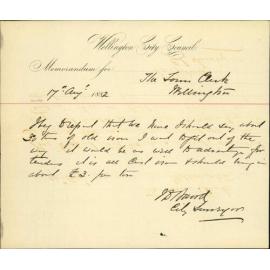 Wellington City Council
Memorandum for
The Town Clerk
17th Augt 1882 Wellington
I beg to report that we have I should say about
30 tons of old iron I want to get out of the
way it would be as well to advertise for
tenders it is all Cast iron & should bring in
about £3. per ton
City Surveyor